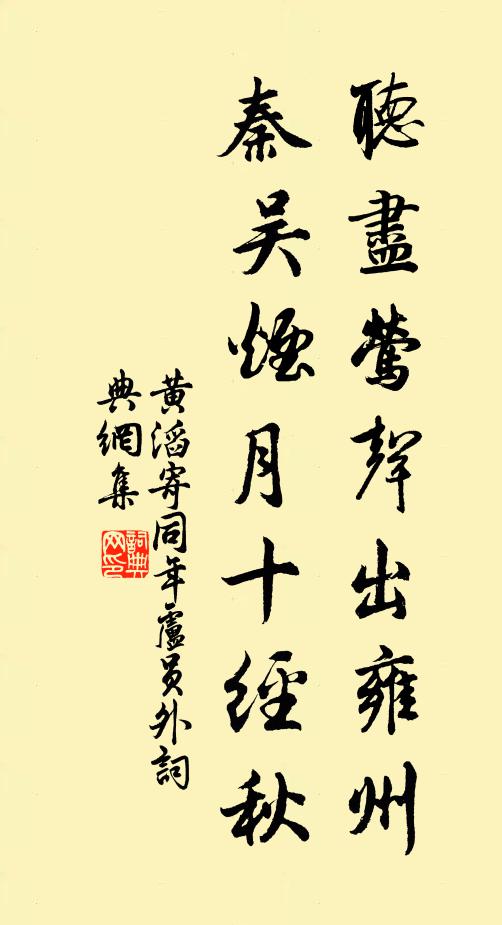 聽盡鶯聲出雍州
秦吳煙月十經秋
黃滔寄同年盧員外詞
典網集
詞典
网印